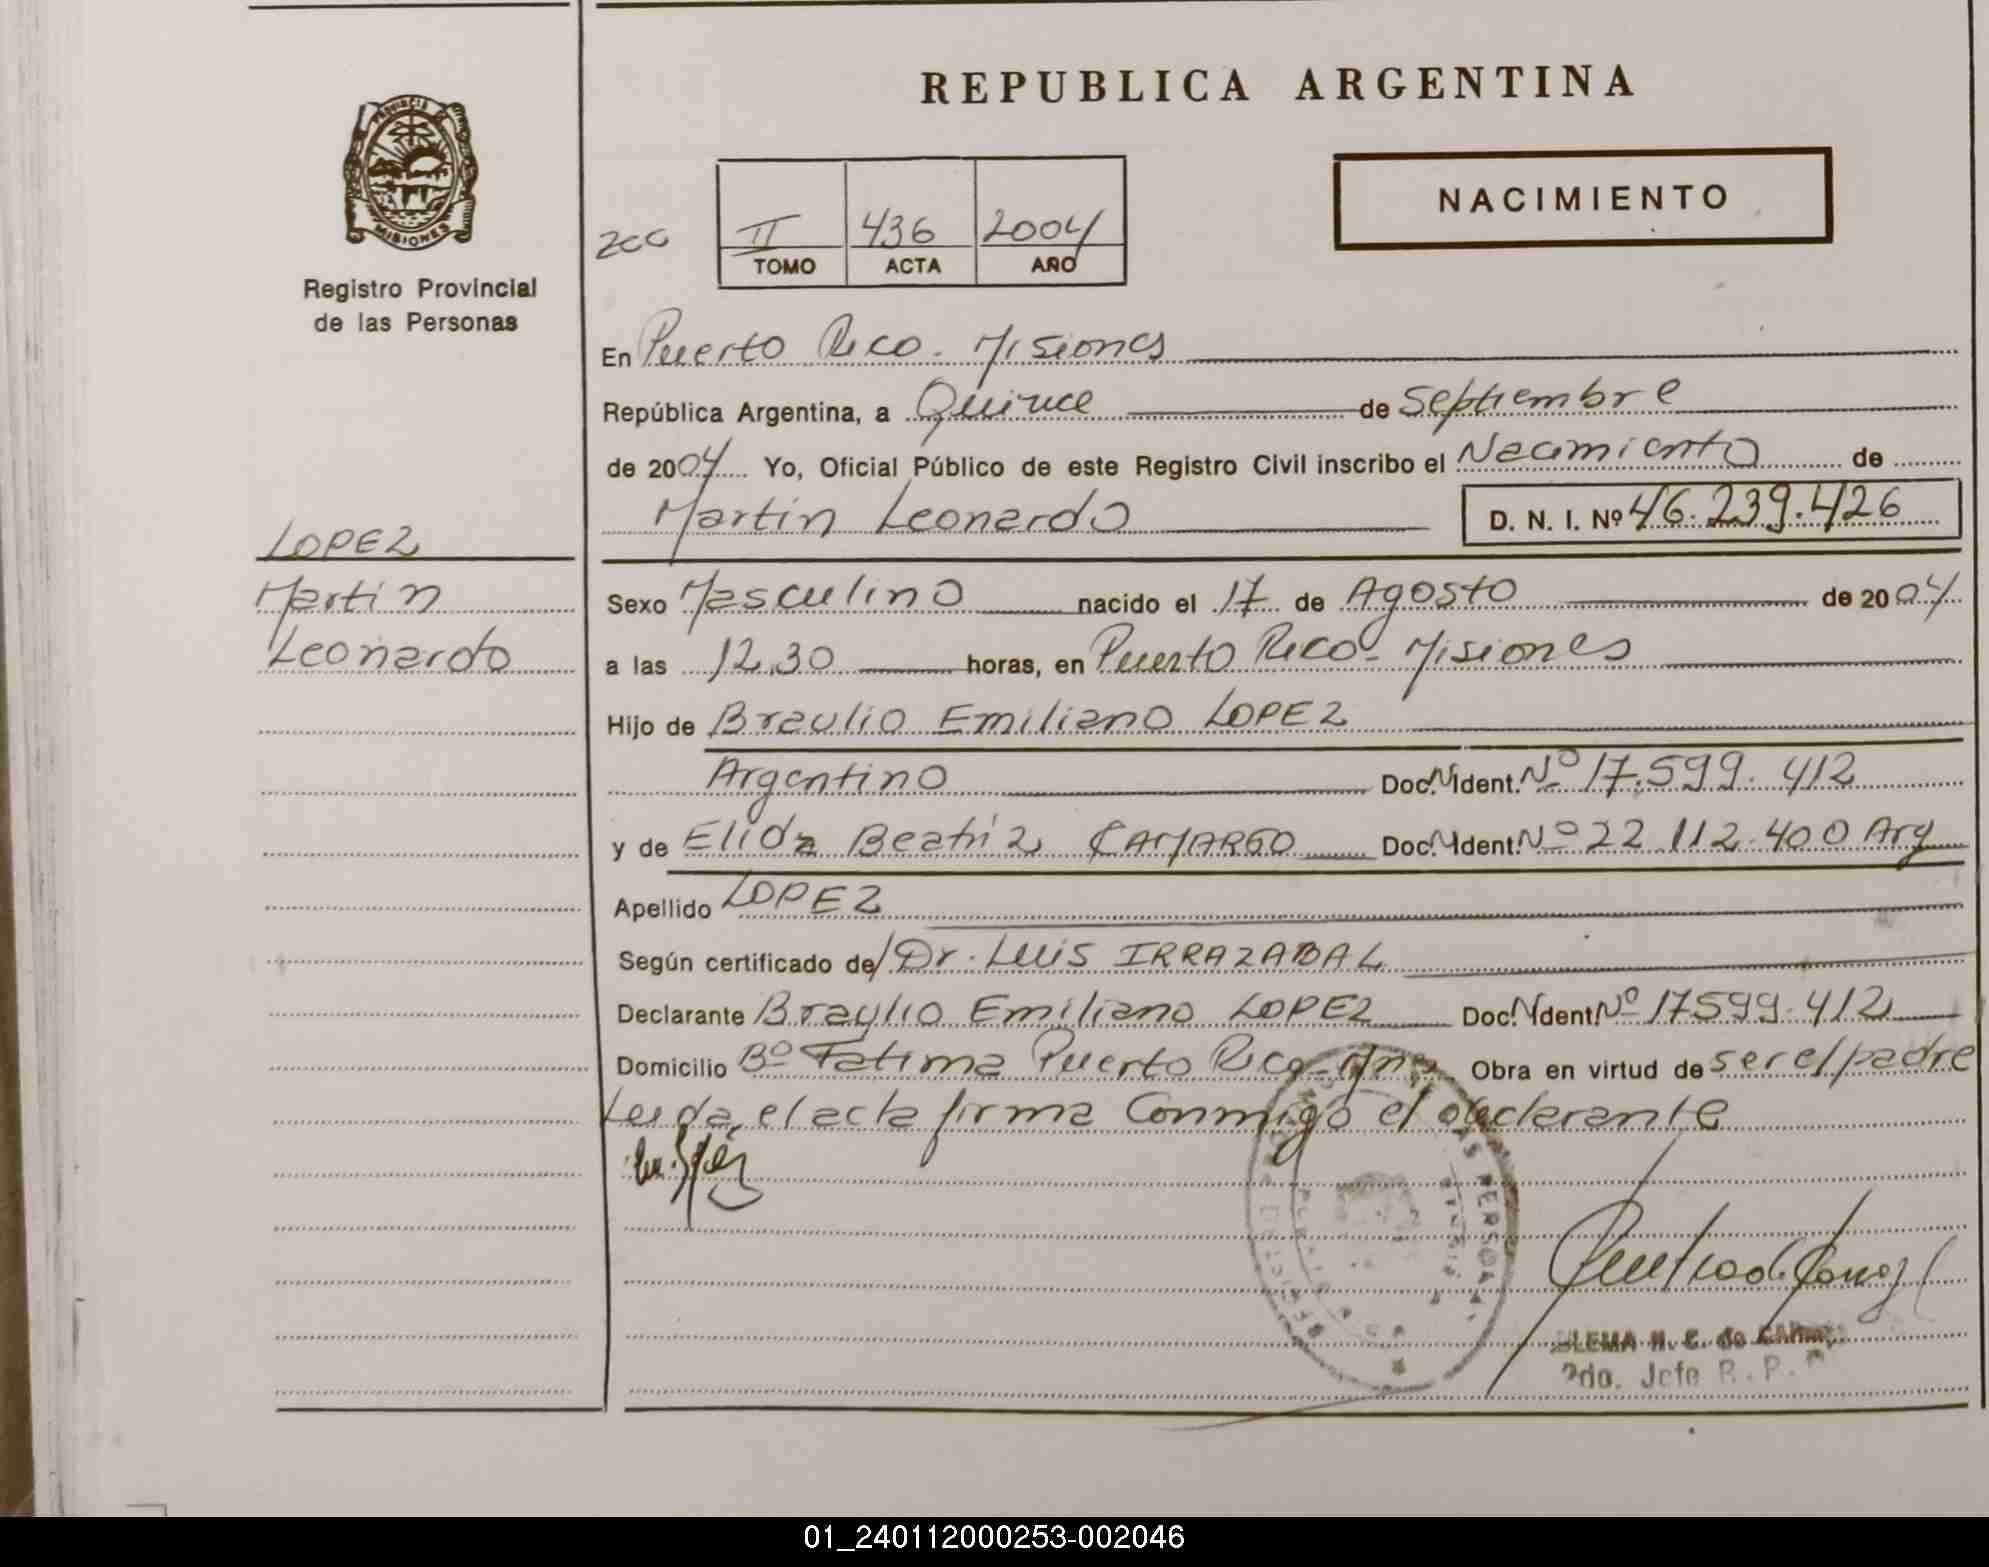 REPUBLICA ARGENTINA
PROVINCIA DE
MISIONES
Registro Provincial
de las Personas
NACIMIENTO
II 436 2004
TOMO ACTA AÑO
En Puerto Rico. Misiones
República Argentina, a Quince de Septiembre
de 2004 Yo, Oficial Público de este Registro Civil inscribo el Nacimiento de
Martin Leonardo D. N. I. Nº 46.239.426
LOPEZ
Martin
Leonardo
Sexo Masculino nacido el 17 de Agosto de 2004
a las 12.30 horas, en Puerto Rico - Misiones
Hijo de Braulio Emiliano LOPEZ
Argentino Doc. N Ident. Nº 17.599.412
y de Elida Beatriz CAMARGO Doc. N Ident. Nº 22.112.400 Arg
Apellido LOPEZ
Según certificado de Dr. Luis IRRAZABAL
Declarante Braulio Emiliano LOPEZ Doc. N Ident. Nº 17599.412
Domicilio Bº Fatima Puerto Rico - Mnes Obra en virtud de ser el padre
Leida el acta firma Conmigo el declarante
2do. Jefe R. P.
01_240112000253-002046